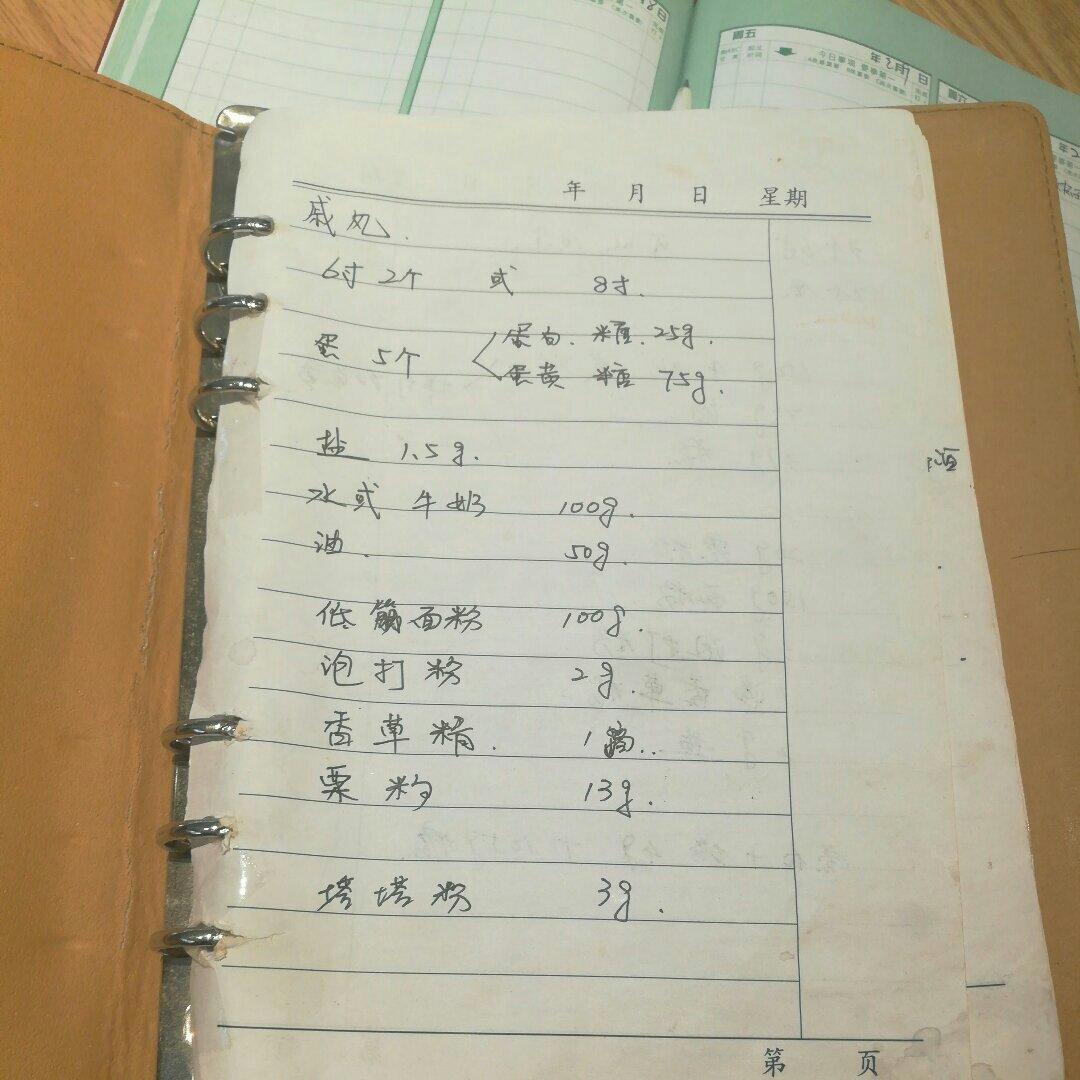 周五
今日事項 優學第一
年2月1日
年 月 日 星期
戚风.
6寸 2个 或 8寸.
蛋 5个
蛋白. 糖. 25g.
蛋黄 糖 75g.
盐 1.5g.
水或 牛奶 100g.
油. 50g.
低筋面粉 100g.
泡打粉 2g.
香草精. 1滴..
粟粉 13g.
塔塔粉 3g.
第 页